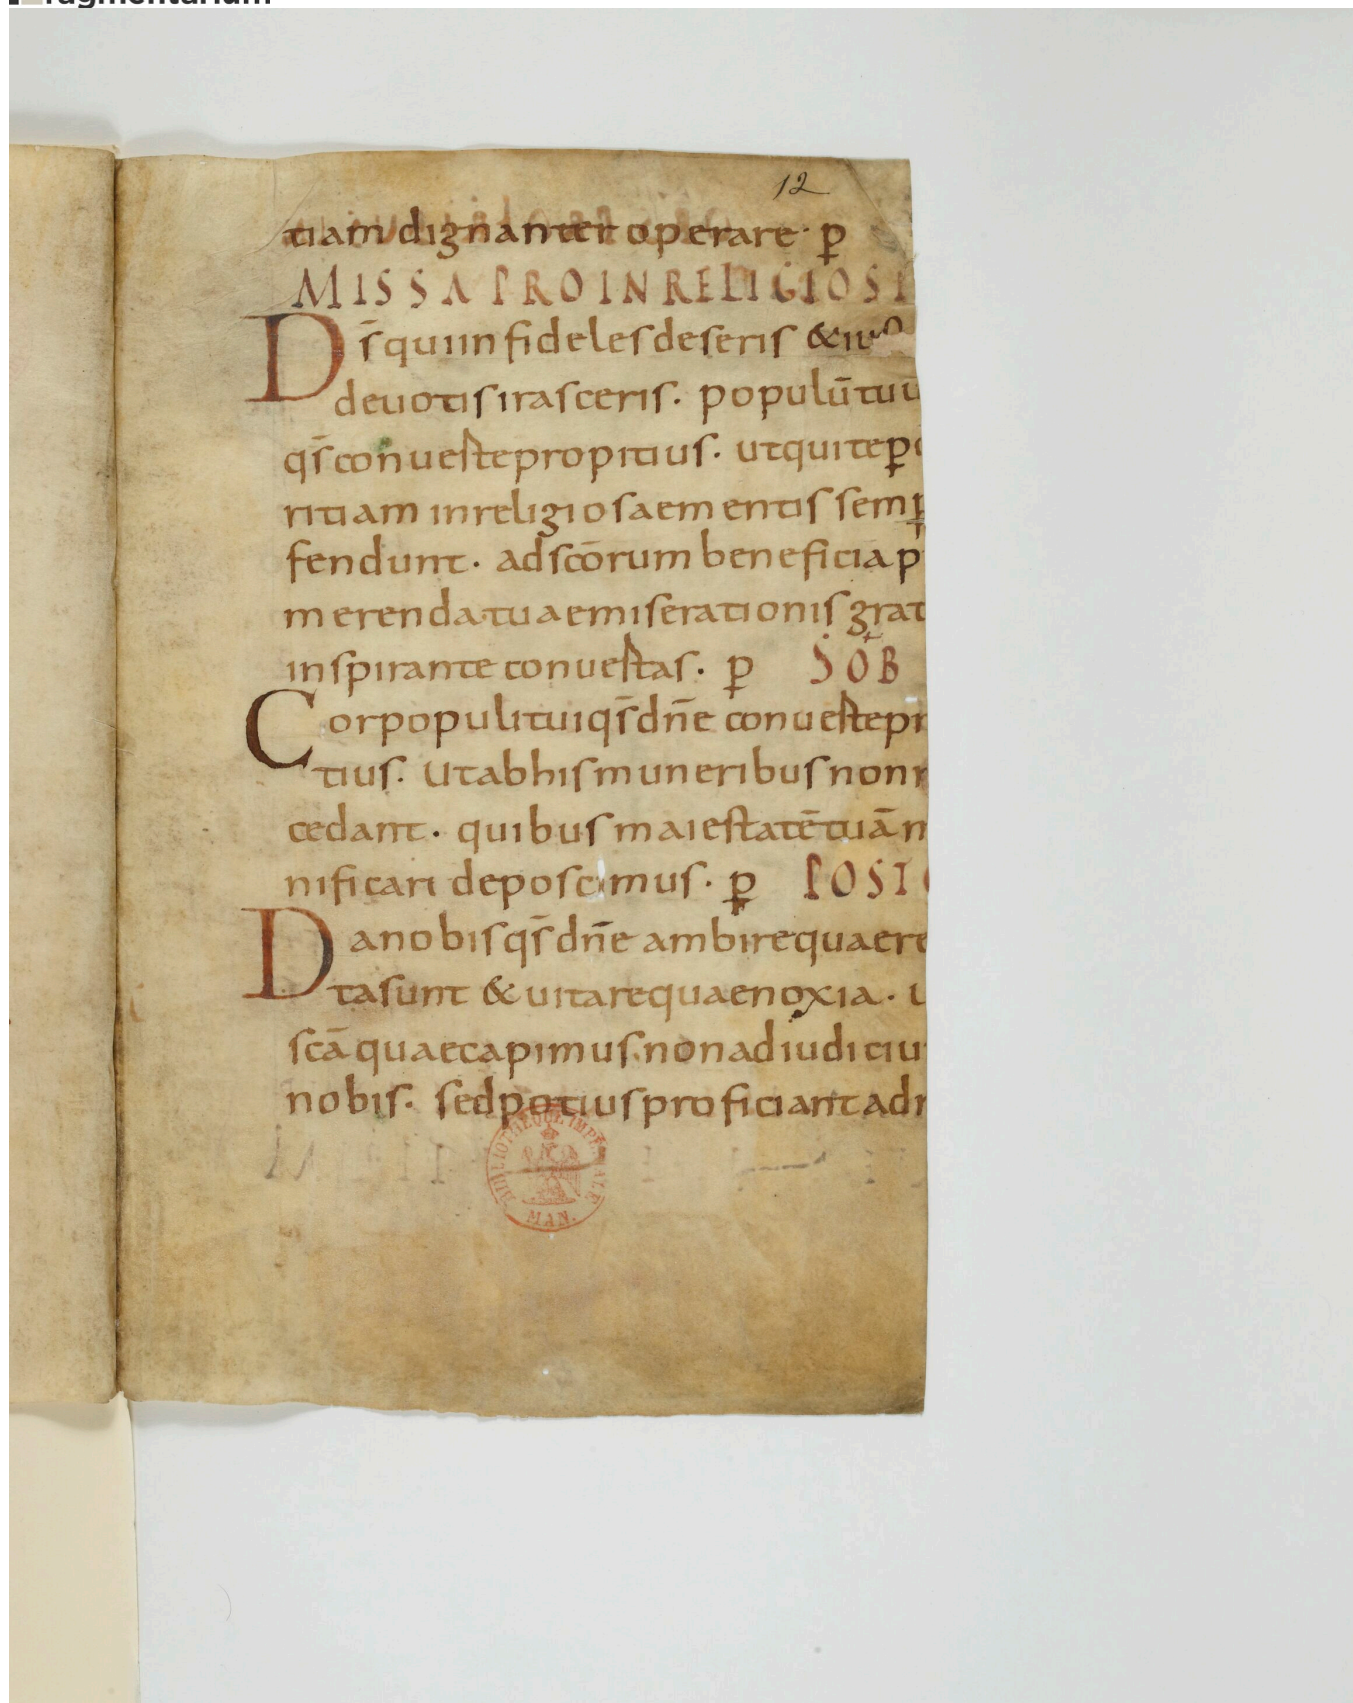 12
tiam dignanter operare· p̱
MISSA PRO INRELIGIOSI
Ds̄ qui infideles deseris & iu
deuotis irasceris. populū tuū
qs̄ conuerte propitius. ut qui te p̱
ritiam inreligiosae mentis semp̱
fendunt· ad scōrum beneficia p
merenda tuae miserationis grat
inspirante conuertas· p̱ SOB
Cor populi tui qs̄ dn̄e conuerte pr
tius. Ut ab his muneribus non r
cedant· quibus maiestatē tuā m
nificari deposcimus· p̱ POST C
Da nobis qs̄ dn̄e ambire quae re
ta sunt & uitare quae noxia· u
scā quae capimus. non ad iudiciu
nobis. sed potius proficiant ad r
BIBLIOTHEQUE IMPERIALE
MAN.